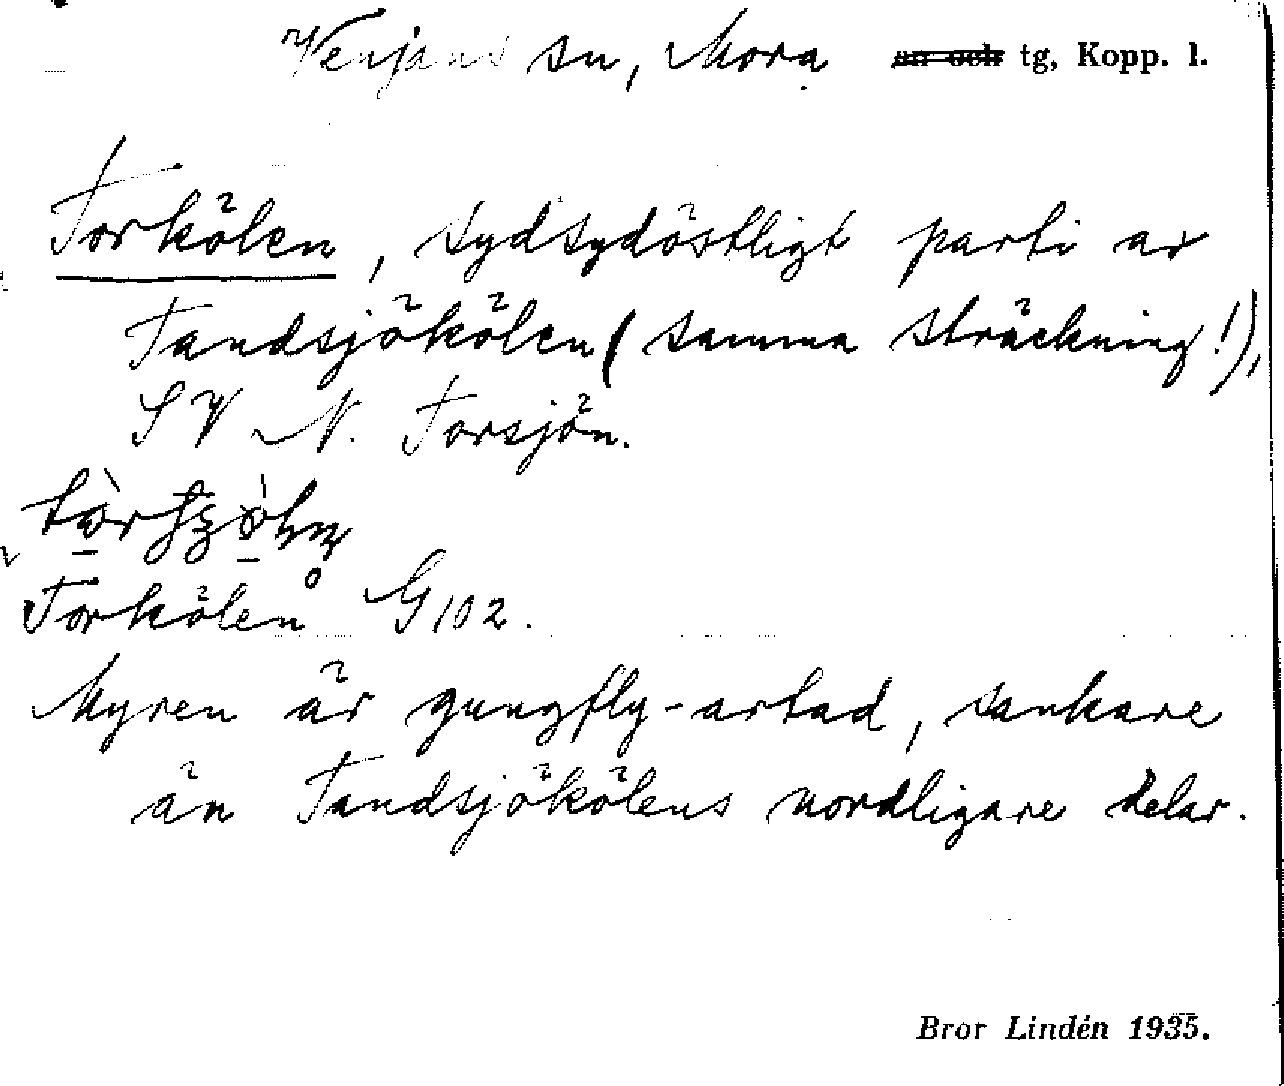 Venjans sn, Mora sn och tg, Kopp. l.
Torkölen, sydsydöstligt parti av
Tandsjökölen (samma sträckning!),
SV N. Torsjön.
Torkölen G 102.
Myren är gungfly-artad, sankare
än Tandsjökölens nordligare delar.
Bror Lindén 1935.